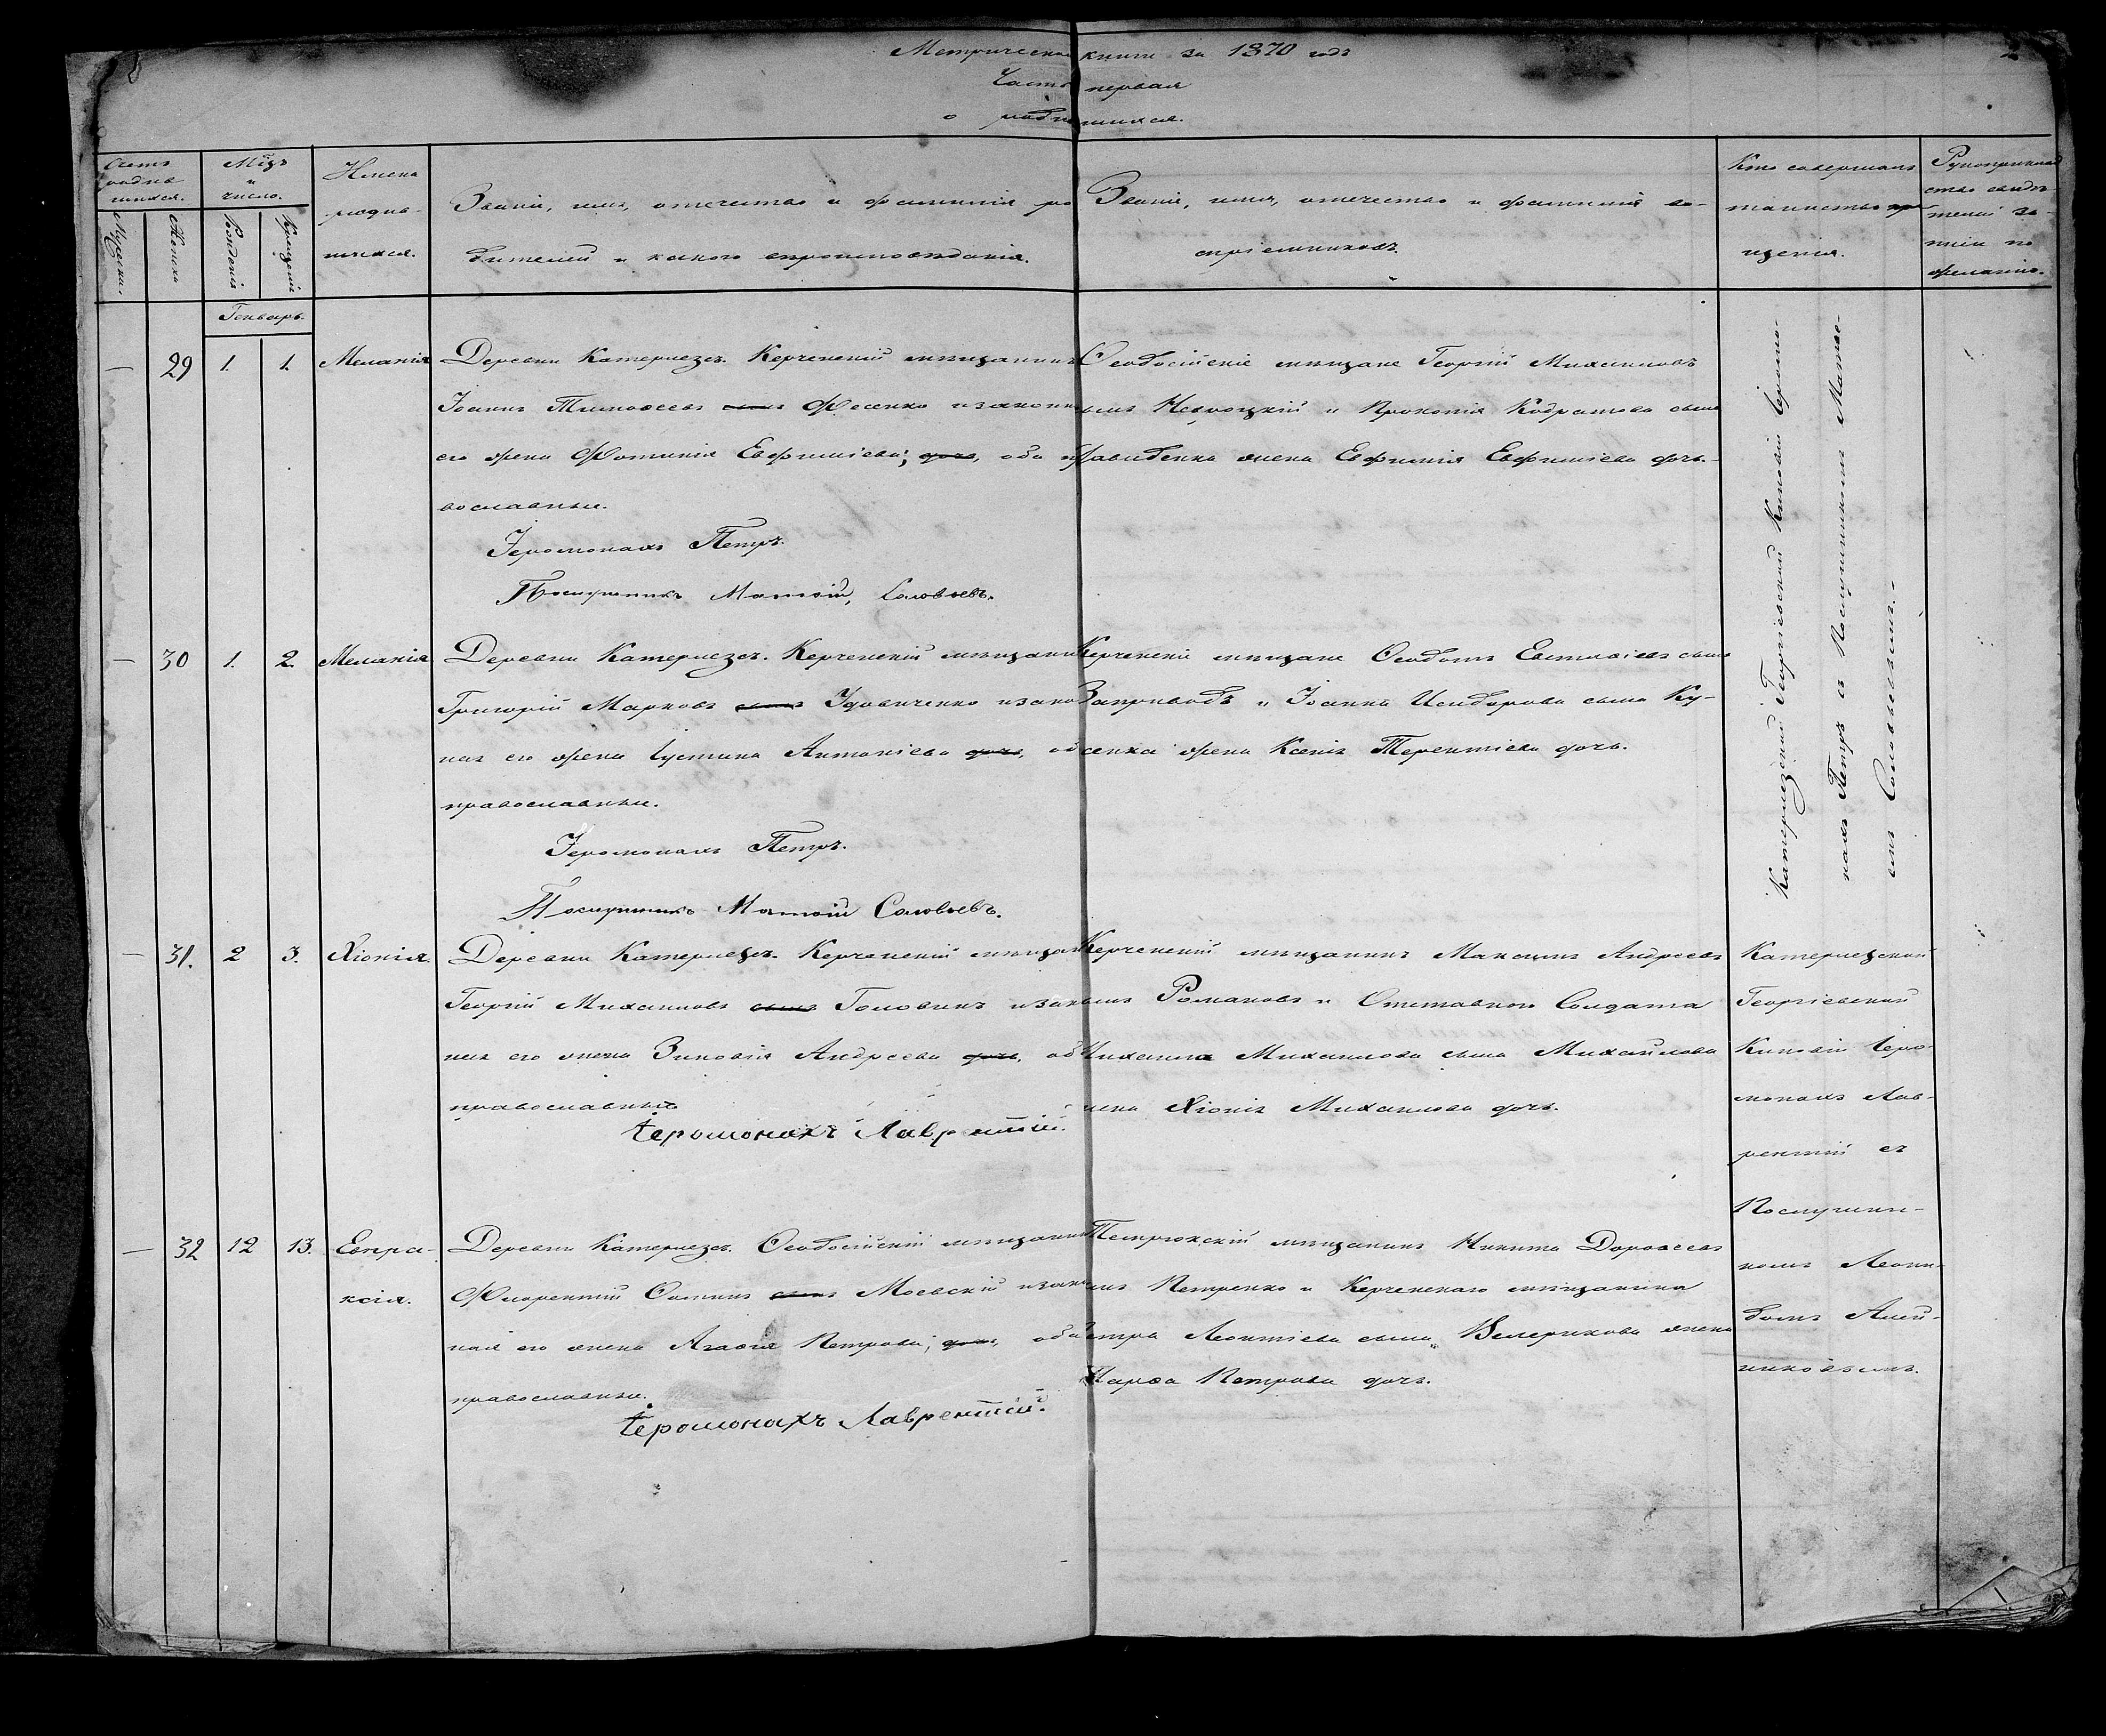 Метрической книги за 1870 годъ
Часть первая
о родившихся.
Счетъ родив шихся.
Мужска.
Женска
Мѣцъ и число.
Рожденія
Крещенія
Имена родив- шихся.
Званіе, имя, отечество и фамилія ро
дителей и какого вѣроисповѣданія.
Званіе, имя, отечество и фамилія во-
спріемниковъ.
Кто совершалъ таинство кре щенія.
Рукоприклад ство свидѣ телей за- писи по желанію.
Генварь.
— 29 1. 1. Меланія
Деревни Катерлезъ. Керченскій мѣщанинъ
Іоаннъ Тимоѳеевъ сынъ Фесенко и законн
его жена Фотинія Евфиміева, дочь, оба п
вославные.
Іеромонахъ Петръ.
Послушникъ Матѳій, Соловьевъ.
Ѳеодосійскіе мѣщане Георгій Михаиловъ
сынъ и Прокопія Кодратова сына
Давиденка жена Евфимія Евфиміева дочь.
Катерлезской Георгіевской Киновіи Іеромо-
нахъ Петръ съ Послушникомъ Матѳе-
емъ Соловьевымъ.
— 30 1. 2. Меланія
Деревни Катерлезъ. Керченскій мѣщанин
Григорій Марковъ сынъ Удовиченко и зако
ная его жена Іустина Антоніева дочь, об
православные.
Іеромонахъ Петръ.
Послушникъ Матѳій Соловьевъ.
Керченскіе мѣщане Ѳеодотъ Евстаѳіевъ сынъ
Заприводъ и Іоанна Исидорова сына Ку-
сенка жена Ксенія Терентіева дочь.
— 31. 2 3. Хіонія.
Деревни Катерлезъ. Керченскій мѣщан
Георгій Михаиловъ сынъ Головинъ и закон
ная его жена Зиновія Андреева дочь, об
православные
Іеромонахъ Лаврентій.
Керченскій мѣщанинъ Максимъ Андреевъ
сынъ Романовъ и Отставного Солдата
Михаила Михаилова сына Михайлова
жена Хіонія Михаилова дочь.
Катерлезской
Георгіевской
Киновіи Іеро-
монахъ Лав-
рентій съ
Послушни-
комъ Леони-
домъ Алей-
никовымъ.
— 32 12 13. Евпра- ксія.
Деревни Катерлезъ. Ѳеодосійскій мѣщанин
Флорентій Ѳоминъ сынъ Моевскій и закон
ная его жена Агаѳія Петрова, дочь, оба
православные.
Іеромонахъ Лаврентій.
Темрюкскій мѣщанинъ Никита Дороѳеевъ
сынъ Петренко и Керченскаго мѣщанина
Петра Леонтіева сына, Велерикова жена
Марѳа Петрова дочь.